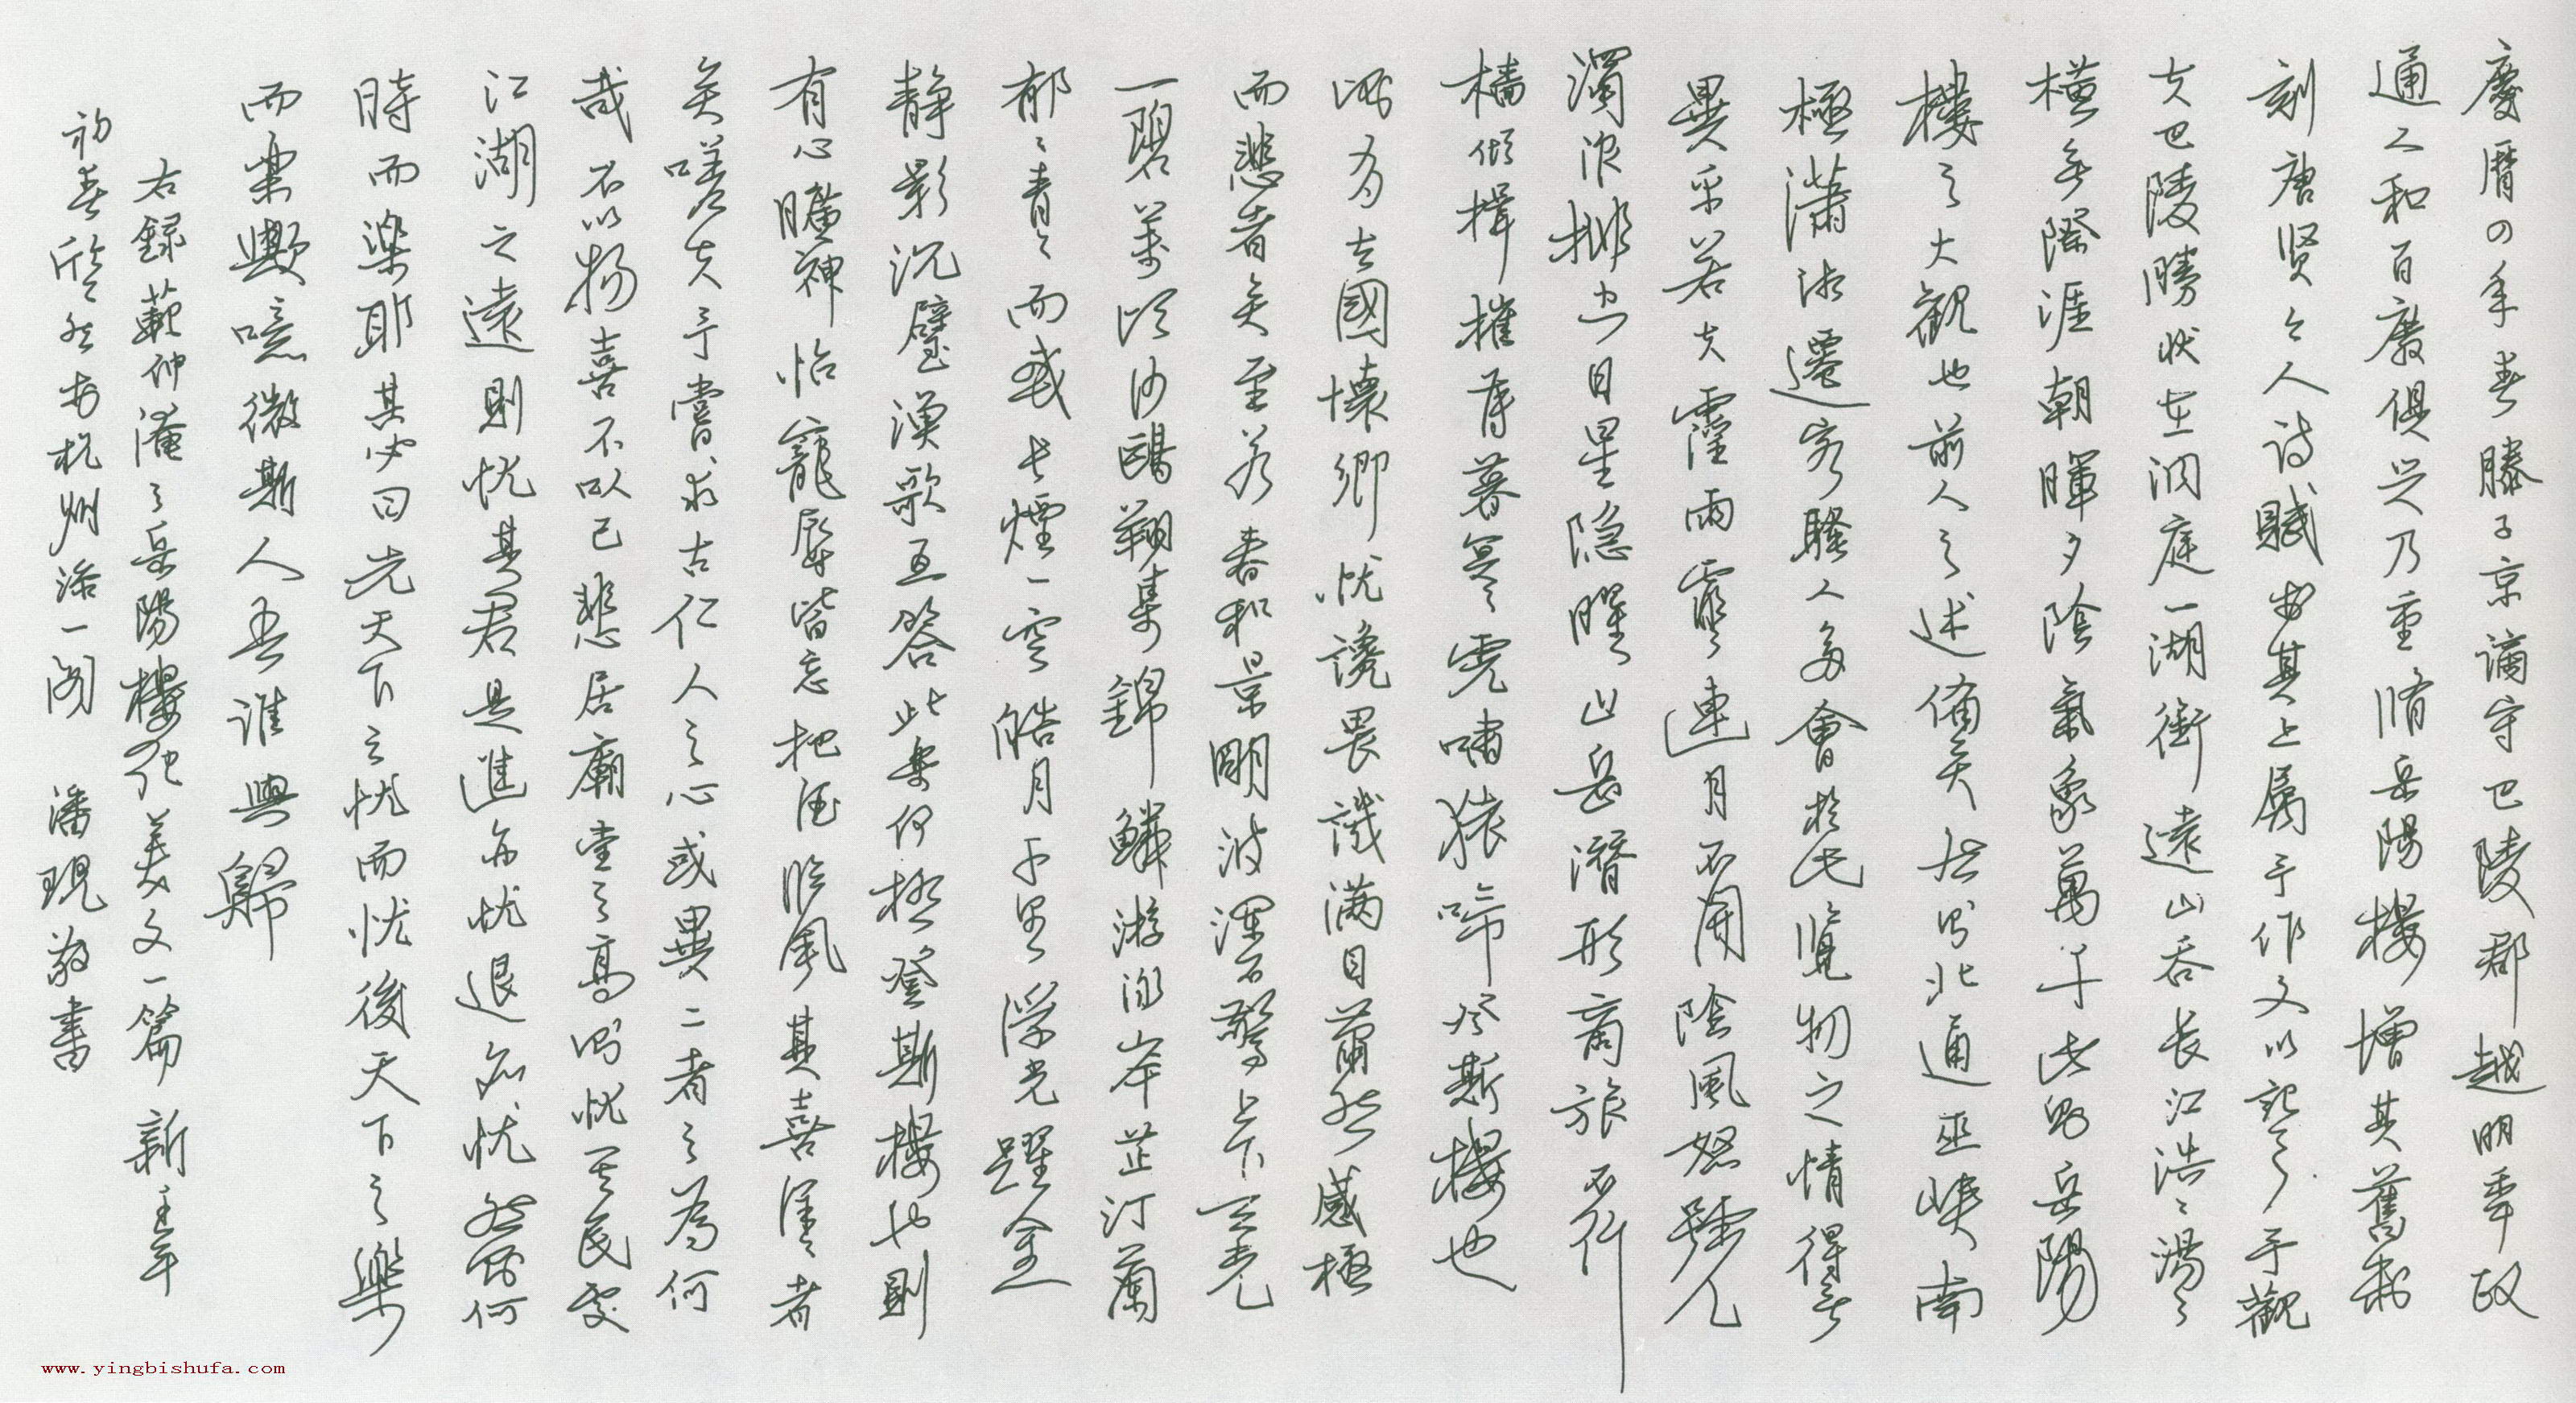 慶曆四年春滕子京謫守巴陵郡越明年政
通人和百廢俱兴乃重脩岳陽樓增其舊制
刻唐贤今人诗賦於其上屬予作文以記之予觀
夫巴陵勝状在洞庭一湖銜遠山吞长江浩々湯々
橫無際涯朝暉夕陰氣象萬千此則岳陽
樓之大觀也前人之述備矣然則北通巫峽南
極瀟湘遷客騷人多會於此覽物之情得無
異乎若夫霪雨霏々連月不開陰風怒號
濁浪排空日星隐曜山岳潛形商旅不行
檣傾楫摧薄暮冥々虎嘯猿啼登斯樓也
則有去國懷鄉忧讒畏譏滿目蕭然感極
而悲者矣至若春和景明波瀾不驚上下天光
一碧萬頃沙鷗翔集錦鱗游泳岸芷汀蘭
郁々青々而或长煙一空皓月千里浮光躍金
静影沉璧漁歌互答此樂何極登斯樓也則
有心曠神怡寵辱皆忘把酒臨風其喜洋々者
矣嗟夫予嘗求古仁人之心或異二者之為何
哉不以物喜不以己悲居廟堂之高則忧其民處
江湖之遠則忧其君是進亦忧退亦忧然則何
時而樂耶其必曰先天下之忧而忧後天下之樂
而樂歟噫微斯人吾誰與歸
右録範仲淹之岳陽樓記美文一篇 新年
初春欣然於杭州一阁 潘現敬書
www.yingbishufa.com